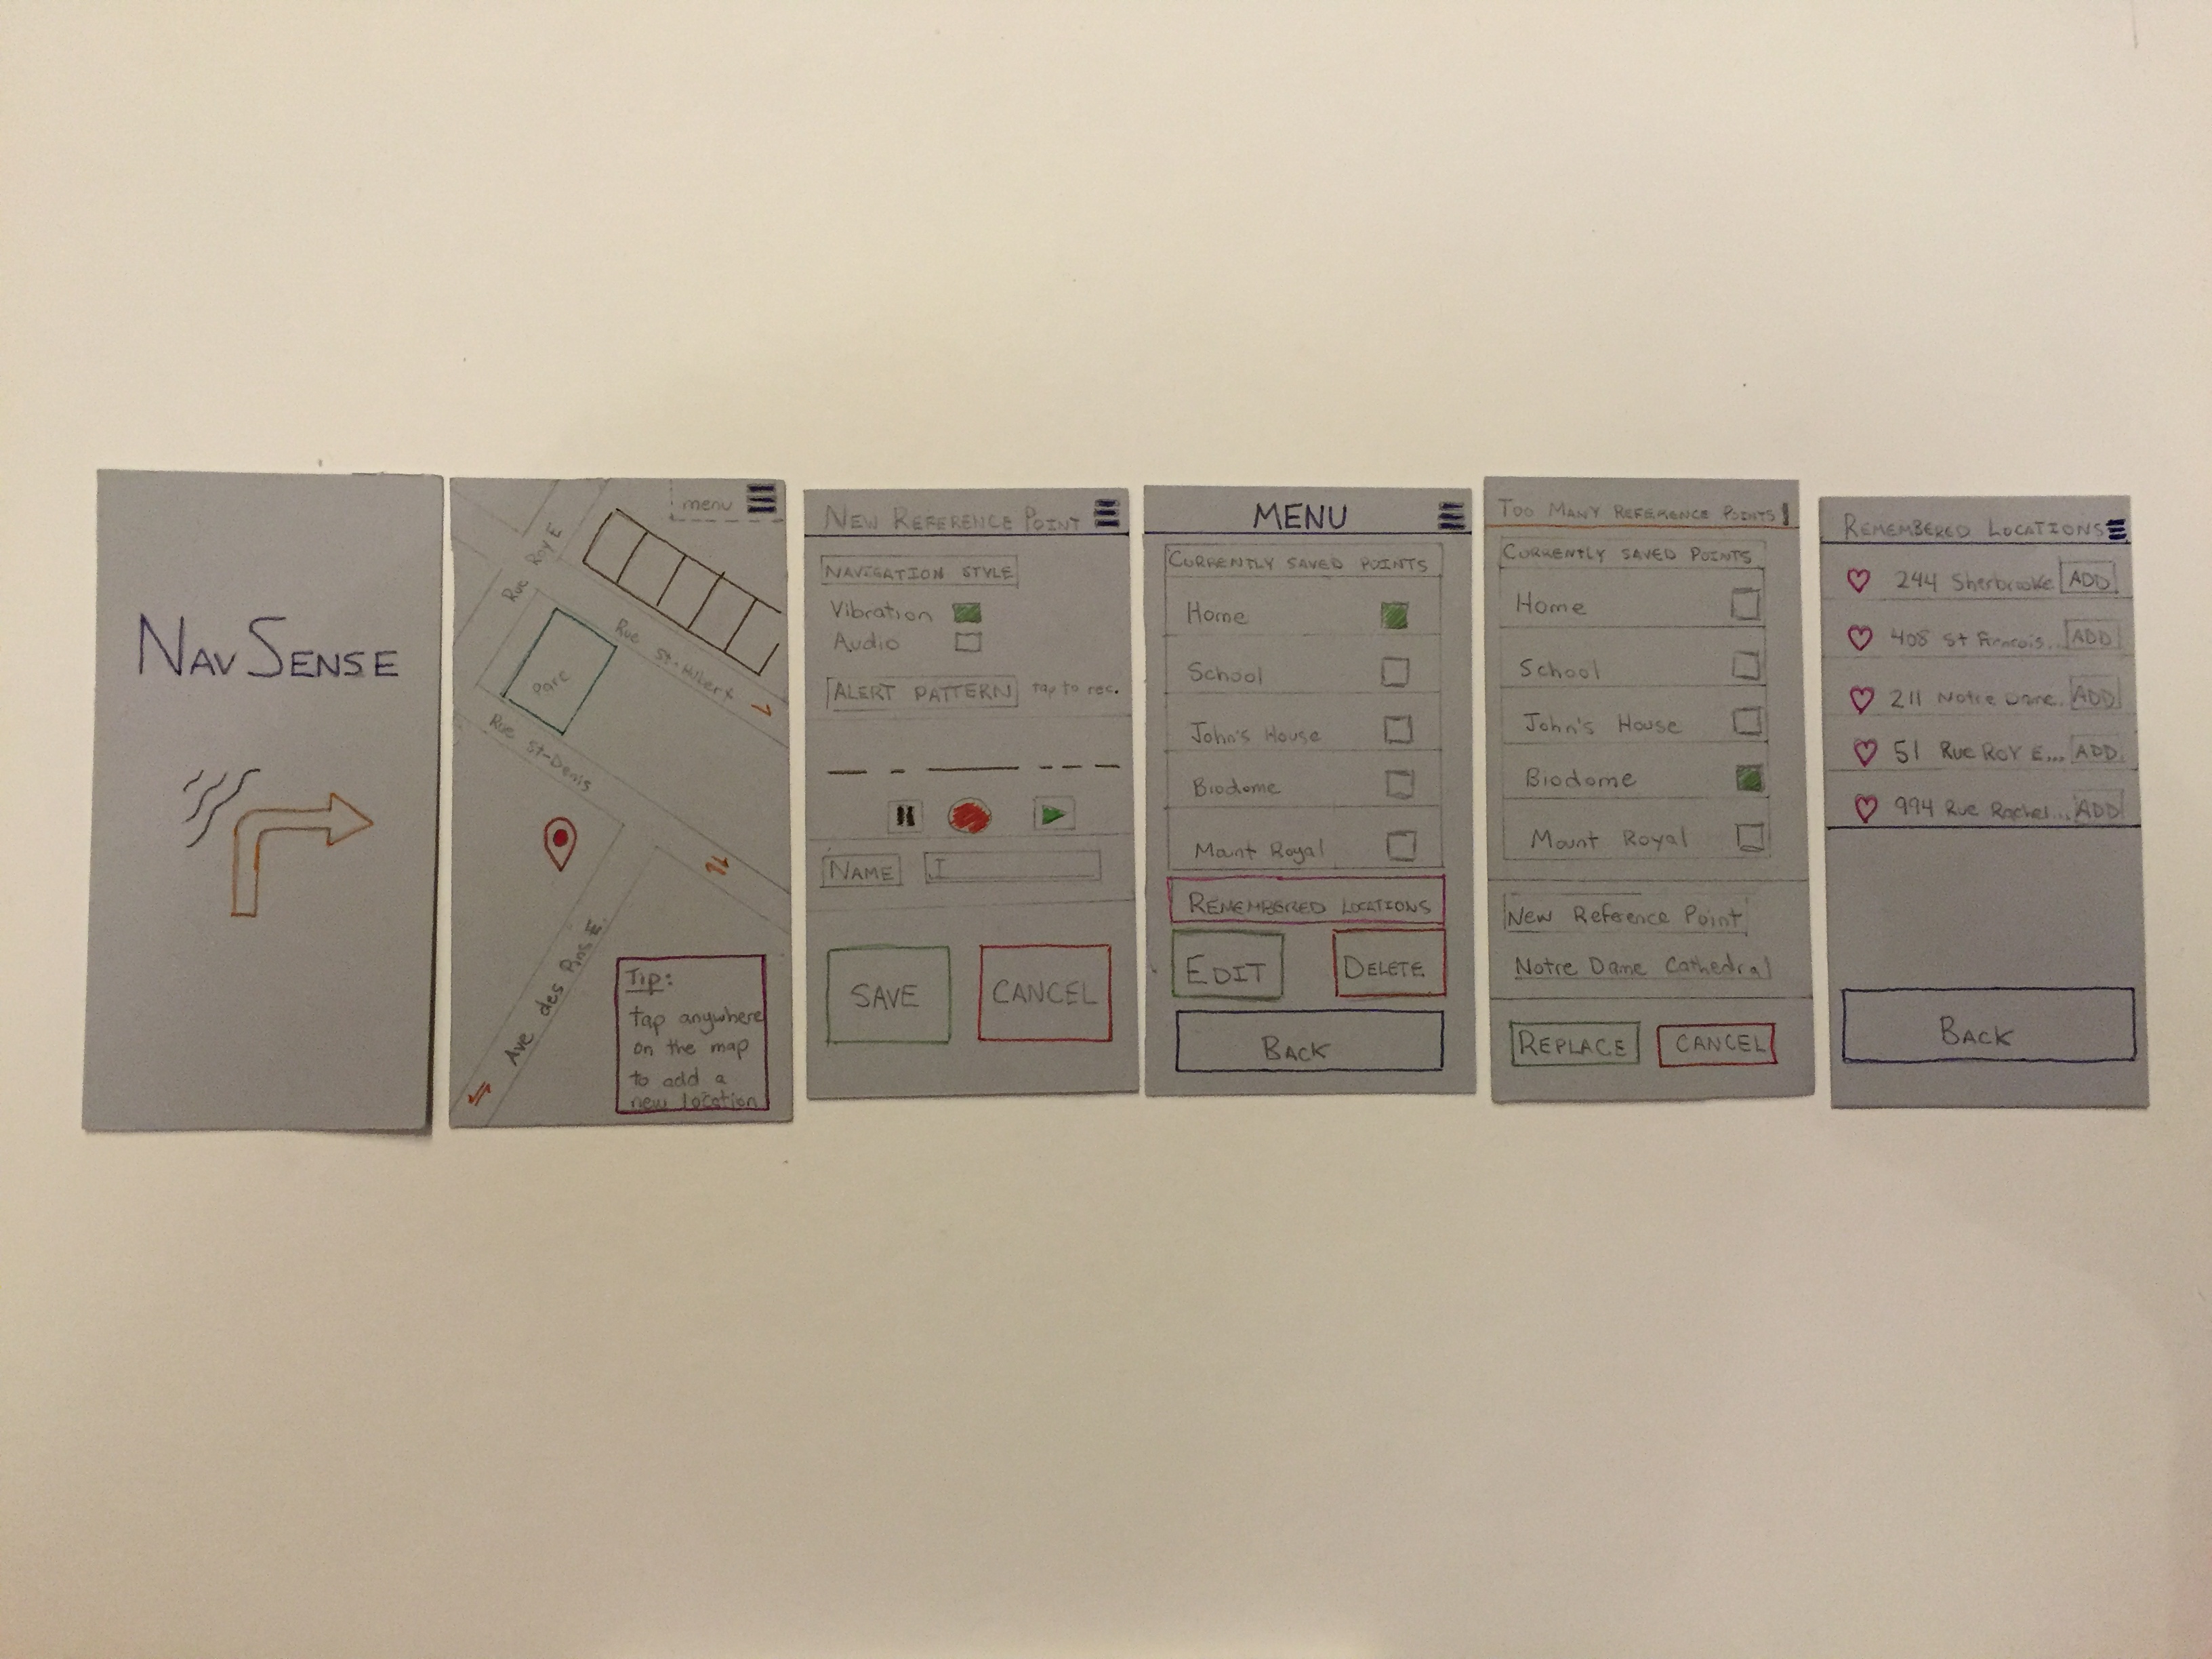 NAV SENSE
menu
Rue Roy E
Rue St-Hubert
Parc
Rue St-Denis
Ave des Pins E.
Tip:
tap anywhere
on the map
to add a
new location
NEW REFERENCE POINT
NAVIGATION STYLE
Vibration
Audio
ALERT PATTERN tap to rec.
NAME
SAVE CANCEL
MENU
CURRENTLY SAVED POINTS
Home
School
John's House
Biodome
Mount Royal
REMEMBERED LOCATIONS
EDIT DELETE
BACK
TOO MANY REFERENCE POINTS
CURRENTLY SAVED POINTS
Home
School
John's House
Biodome
Mount Royal
New Reference Point
Notre Dame Cathedral
REPLACE CANCEL
REMEMBERED LOCATIONS
244 Sherbrooke ADD
408 St Francois... ADD
211 Notre Dame. ADD
51 Rue ROY E... ADD
994 Rue Rachel... ADD
BACK